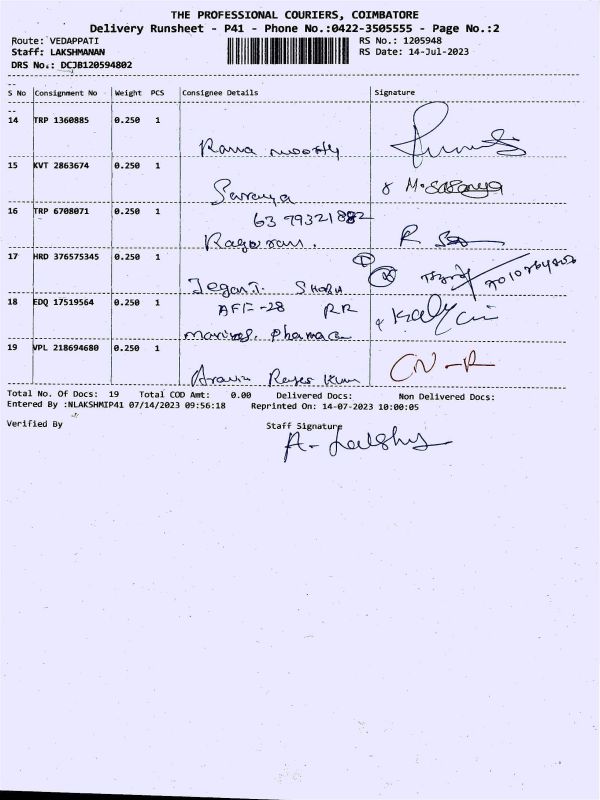 THE PROFESSIONAL COURIERS, COIMBATORE
Delivery Runsheet - P41 - Phone No.:0422-3505555 - Page No.:2
Route: VEDAPPATI RS No.: 1205948
Staff: LAKSHMANAN RS Date: 14-Jul-2023
DRS No.: DCJB120594802
S No Consignment No Weight PCS Consignee Details Signature
14 TRP 1360885 0.250 1
Rama moorthy
15 KVT 2863674 0.250 1
Saranya M.
16 TRP 6708071 0.250 1
R
17 HRD 376575345 0.250 1
Jegan T.
18 EDQ 17519564 0.250 1 AFF-28 RR
19 VPL 218694680 0.250 1 CN-R
Total No. Of Docs: 19 Total COD Amt: 0.00 Delivered Docs: Non Delivered Docs:
Entered By :NLAKSHMIP41 07/14/2023 09:56:18 Reprinted On: 14-07-2023 10:00:05
Verified By Staff Signature